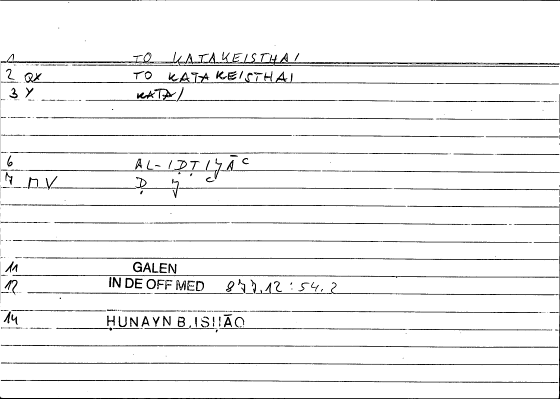 1 TO KATAKEISTHAI
2 QX TO KATAKEISTHAI
3 Y KATA/
6 AL-IḌṬIǦĀC
7 MV Ḍ Ǧ C
11 GALEN
12 IN DE OFF MED 877,12:54.2
14 ḤUNAYN B.ISḤĀQ